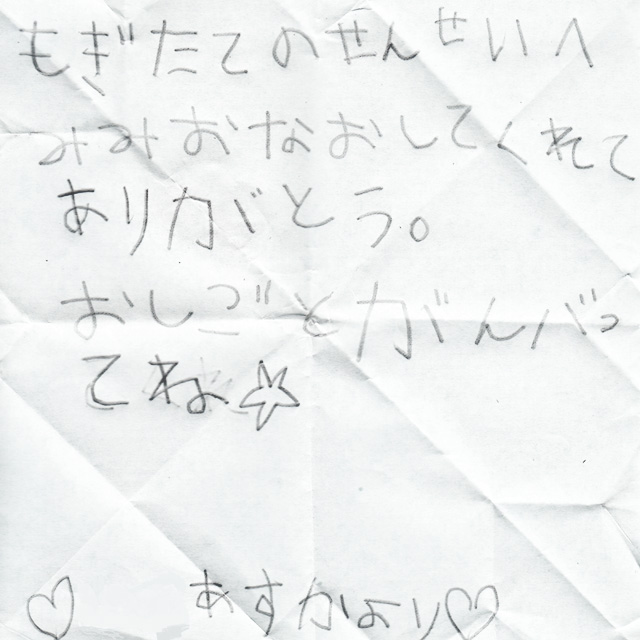 もぎたてのせんせいへ
みみおなおしてくれて
ありがとう。
おしごとがんばっ
てね☆
♡ あすかより♡